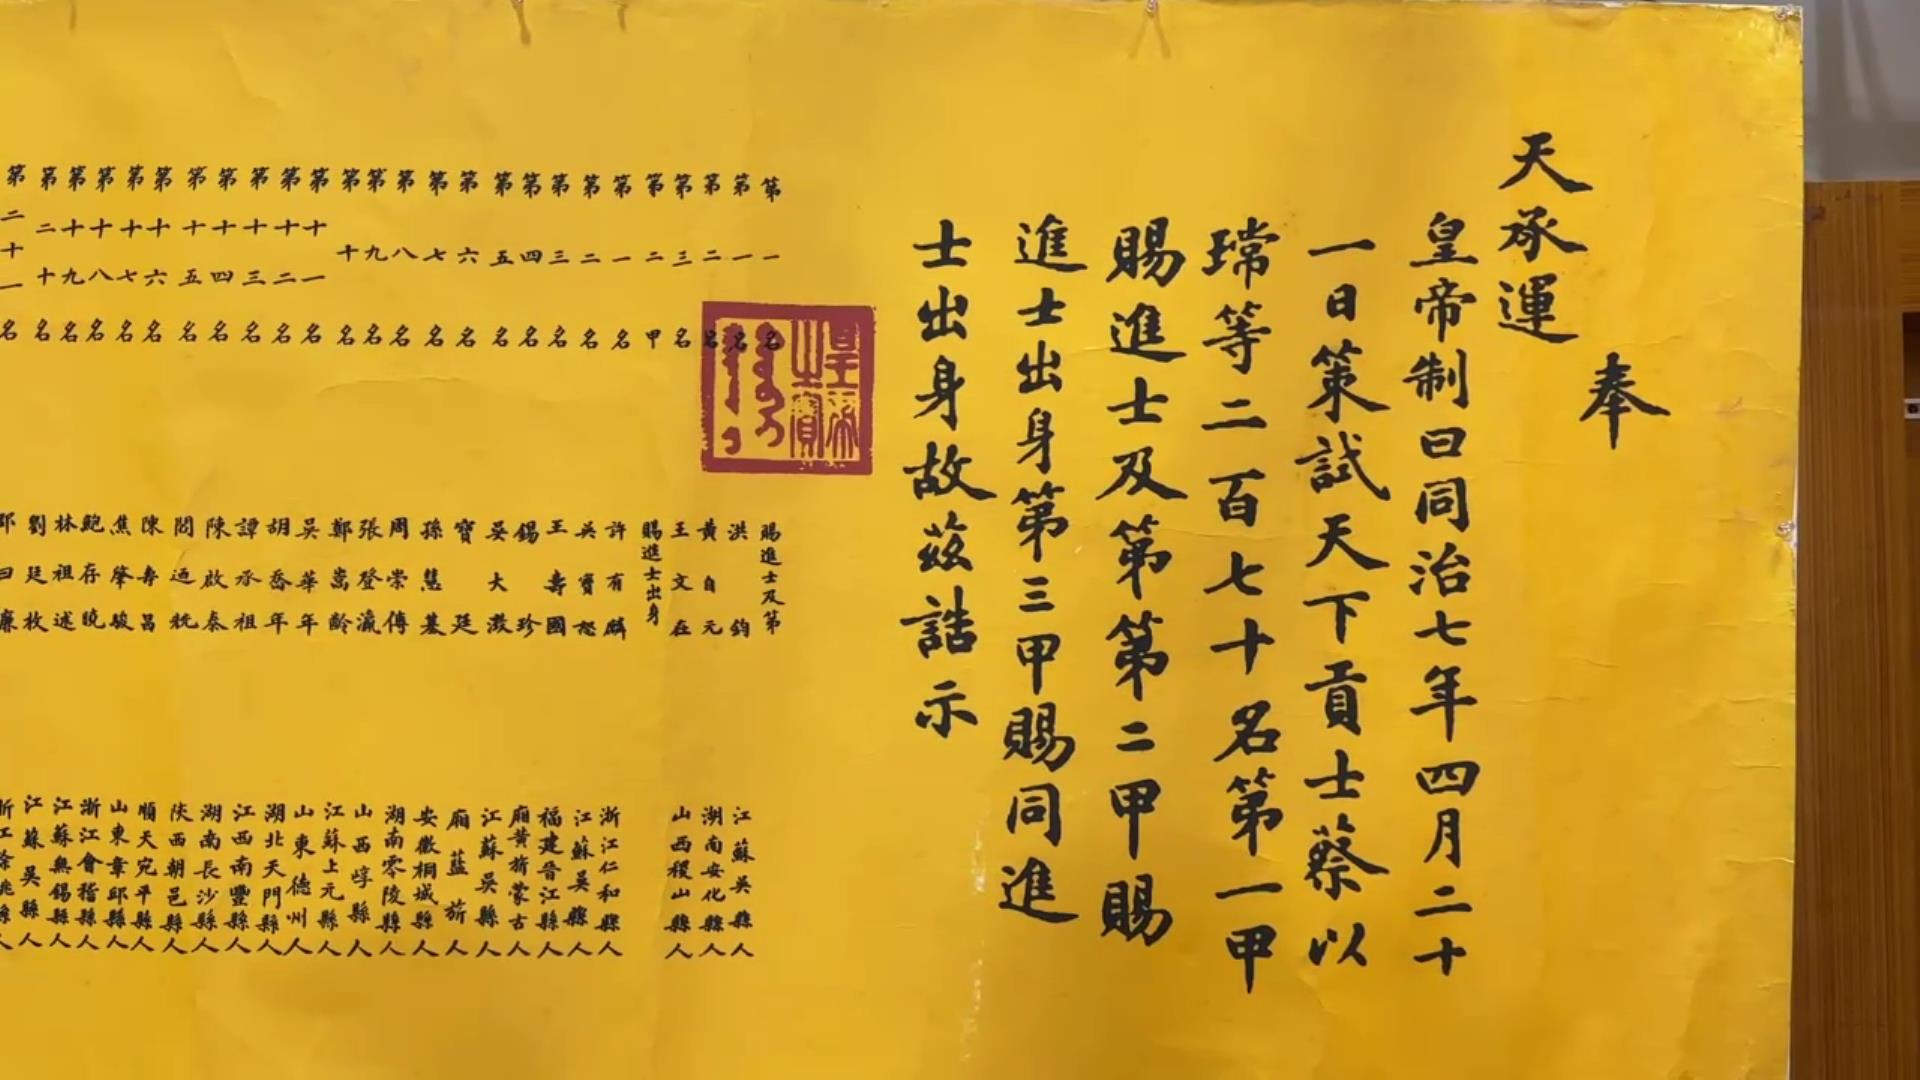 奉
天承運
皇帝制曰同治七年四月二十
一日策試天下貢士蔡以
瑺等二百七十名第一甲
賜進士及第第二甲賜
進士出身第三甲賜同進
士出身故茲誥示
皇帝之寶
第一名 賜進士及第
第一名 洪鈞 江蘇吳縣人
第二名 黃自元 湖南安化縣人
第三名 王文在 山西稷山縣人
第二甲 賜進士出身
第一名 許有麟 浙江仁和縣人
第二名 吳寶恕 江蘇吳縣人
第三名 王壽國 福建晉江縣人
第四名 錫珍 廂黃旂蒙古人
第五名 吳大澂 江蘇吳縣人
第六名 寶廷 廂藍旂人
第七名 孫慧基 安徽桐城縣人
第八名 周崇傅 湖南零陵縣人
第九名 張登瀛 山西崞縣人
第十名 鄭嵩齡 江蘇上元縣人
第十一名 吳華年 山東德州人
第十二名 胡喬年 湖北天門縣人
第十三名 譚承祖 江西南豐縣人
第十四名 陳啟泰 湖南長沙縣人
第十五名 閻迺竤 陝西朝邑縣人
第十六名 陳壽昌 順天宛平縣人
第十七名 焦肇駿 山東章邱縣人
第十八名 鮑存曉 浙江會稽縣人
第十九名 林祖述 江蘇無錫縣人
第二十名 劉廷枚 江蘇吳縣人
第二十一名 邵曰濂 浙江餘姚縣人